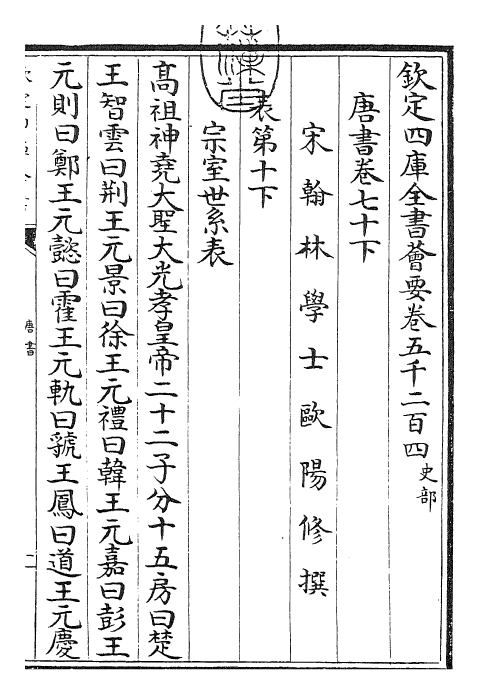 欽定四庫全書薈要卷五千二百四史部
唐書卷七十下
宋翰林學士歐陽修撰
表第十下
宗室世系表
高祖神堯大聖大光孝皇帝二十二子分十五房曰楚
王智雲曰荆王元景曰徐王元禮曰韓王元嘉曰彭王
元則曰鄭王元懿曰霍王元軌曰虢王鳳曰道王元慶
唐書